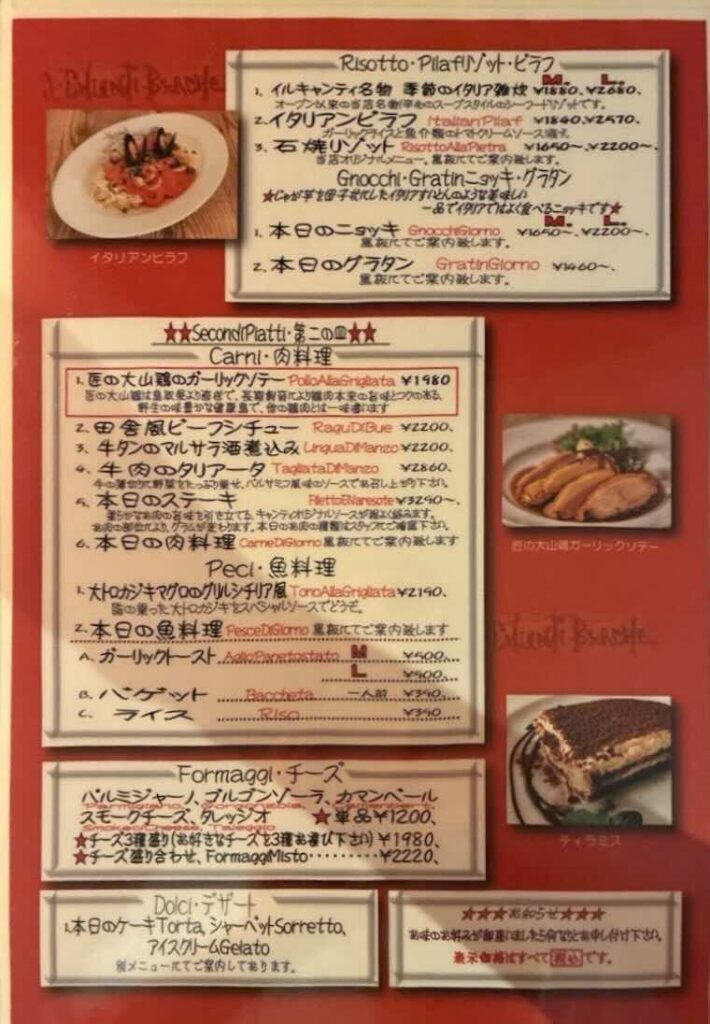 Risotto・Pilafリゾット・ピラフ
M. L.
1. イルキャンティ名物 季節のイタリア雑炊 ¥1880、¥2680、
オープン以来の当店名物!辛めのスープスタイルのシーフードリゾットです。
2. イタリアンピラフ ItalianPilaf ¥1840、¥2570、
ガーリックライスと魚介類のトマトクリームソース添え。
3. 石焼リゾット RisottoAllaPietra ¥1650〜、¥2200〜、
当店オリジナルメニュー。黒板にてご案内致します。
Gnocchi・Gratinニョッキ・グラタン
★じゃが芋を団子状にしたイタリアすいとんのような美味しい
一品でイタリアではよく食べるニョッキです★
M. L.
1. 本日のニョッキ GnocchiGiorno ¥1650〜、¥2200〜、
黒板にてご案内致します。
2. 本日のグラタン GratinGiorno ¥1460〜、
黒板にてご案内致します。
イタリアンピラフ
★★SecondiPiatti・第二の皿★★
Carni・肉料理
1. 匠の大山鶏のガーリックソテー PolloAllaGrigliata ¥1980
匠の大山鶏は鳥取県より直送で、長期飼育により鶏肉本来の旨味とコクのある、
野生の味豊かな健康鳥で、他の鶏肉とは一味違います
2. 田舎風ビーフシチュー RaguDiBue ¥2200、
3. 牛タンのマルサラ酒煮込み LinguaDiManzo ¥2200、
4. 牛肉のタリアータ TagliataDiManzo ¥2860、
牛の薄切りに野菜をたっぷり乗せ、バルサミコ風味のソースでお召し上がり下さい。
5. 本日のステーキ FilettoENaresote ¥3290〜、
柔らかなお肉の旨味を引き立てる、キャンティオリジナルソースが程よく絡みます。
お肉の部位により、グラムが変わります。本日のお肉の種類はスタッフにご確認下さい。
6. 本日の肉料理 CarneDiGiorno 黒板にてご案内致します
Peci・魚料理
1. 大トロカジキマグロのグリルシチリア風 TonoAllaGrigliata ¥2190、
脂の乗った大トロカジキをスペシャルソースでどうぞ。
2. 本日の魚料理 PesceDiGiorno 黒板にてご案内致します
A. ガーリックトースト AglioPanetostato M ¥500、
L ¥900、
B. バゲット Baccheta 一人前 ¥390、
C. ライス Riso ¥390
匠の大山鶏ガーリックソテー
Formaggi・チーズ
パルミジャーノ、ゴルゴンゾーラ、カマンベール
Parmigiano, Gorgonzola, Camembert,
スモークチーズ、タレッジオ ★単品¥1200、
SmokedCheese, Taleggio
★チーズ3種盛り(お好きなチーズを3種お選び下さい) ¥1980、
★チーズ盛り合わせ、FormaggiMisto・・・・・・・・・¥2220、
ティラミス
Dolci・デザート
1.本日のケーキTorta、シャーベットSorretto、
アイスクリームGelato
別メニューにてご案内しております。
★★★お知らせ★★★
お味のお好みが御座いましたら何なりとお申し付け下さい。
表示価格はすべて税込です。